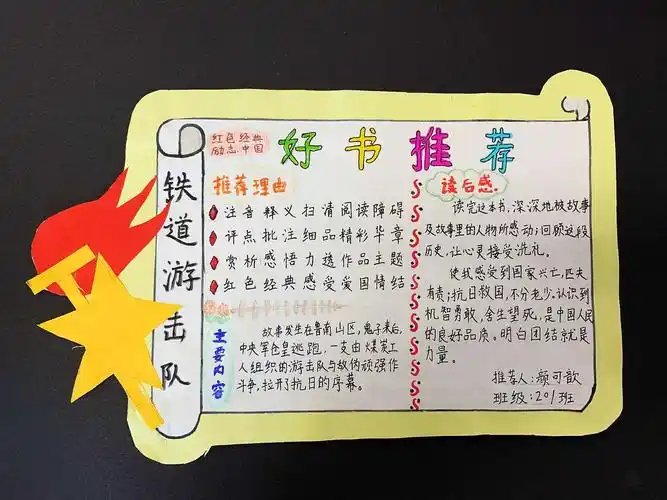 铁道游击队
红色经典
励志中国
好书推荐
推荐理由
注音释义扫清阅读障碍
评点批注细品精彩华章
赏析感悟力透作品主题
红色经典感受爱国情结
主要内容
故事发生在鲁南山区,鬼子来后,
中央军仓皇逃跑,一支由煤炭工
人组织的游击队与敌伪顽强作
斗争,拉开了抗日的序幕。
读后感.
读完这本书,深深地被故事
及故事里的人物所感动;回顾这段
历史,让心灵接受洗礼。
使我感受到国家兴亡,匹夫
有责;抗日救国,不分老少.认识到
机智勇敢,舍生望死,是中国人民
的良好品质。明白团结就是
力量。
推荐人:颜可歆
班级:201班